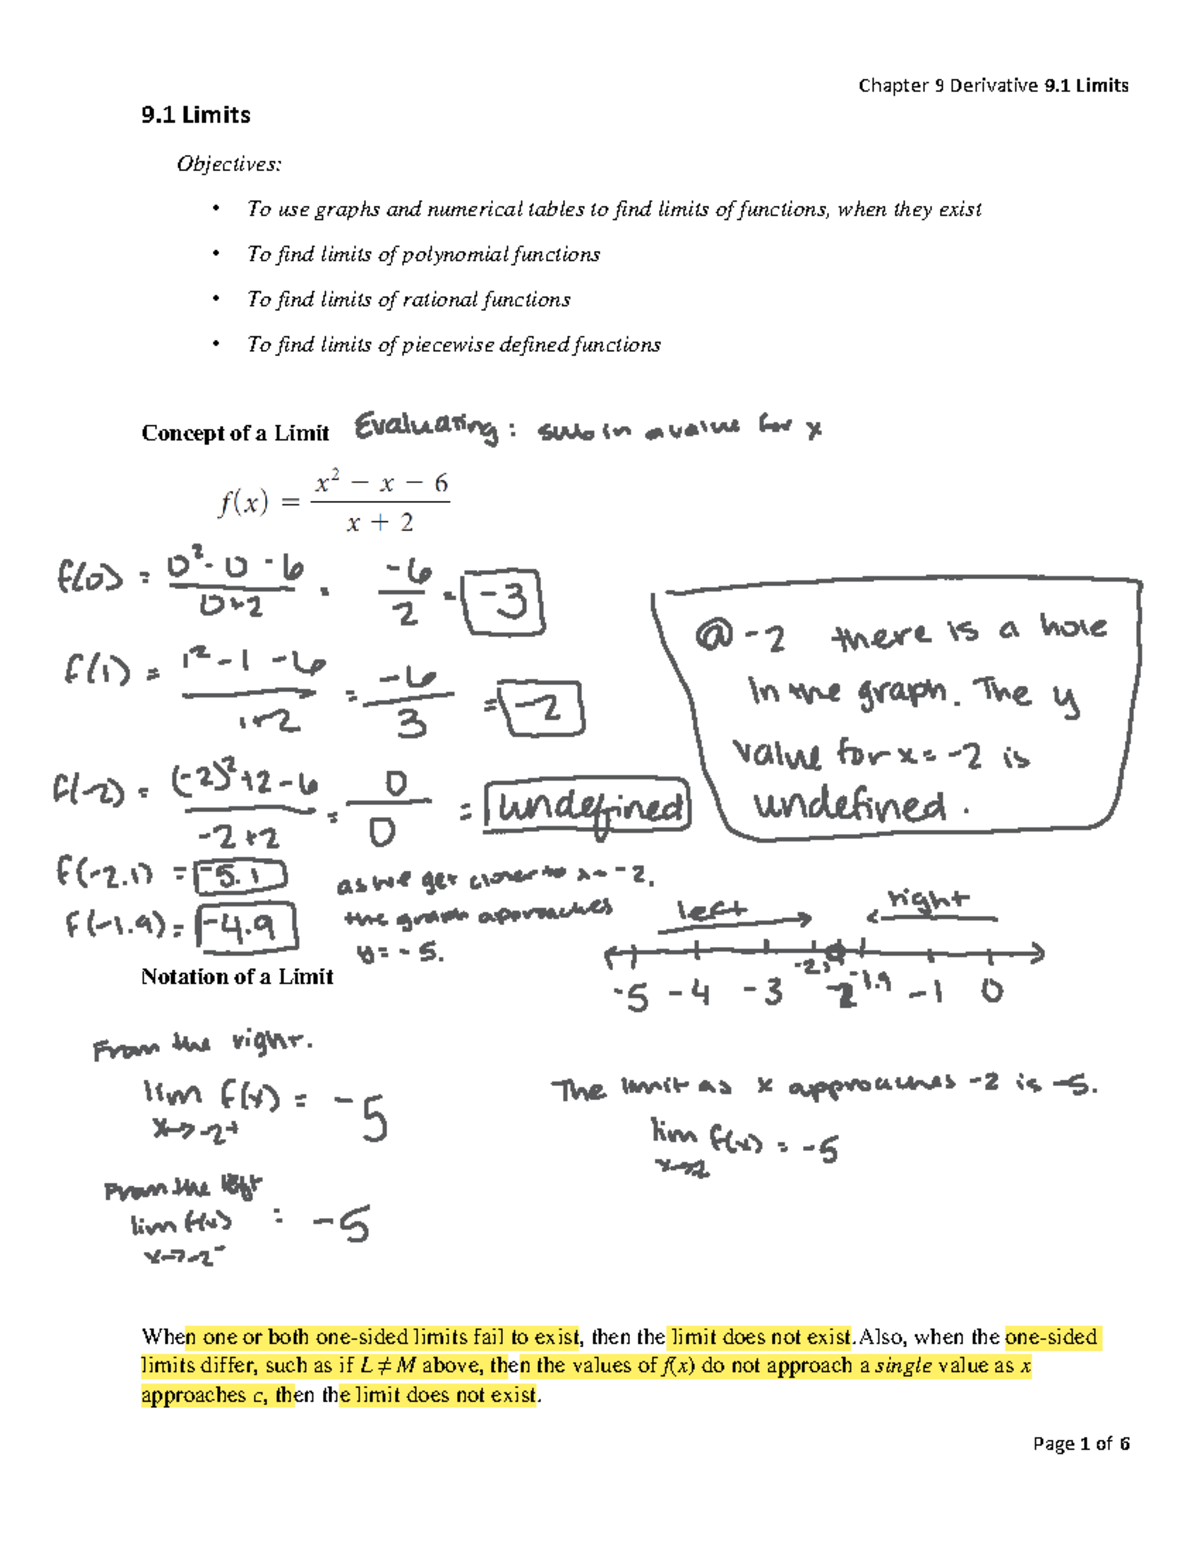 Chapter 9 Derivative 9.1 Limits
9.1 Limits
Objectives:
• To use graphs and numerical tables to find limits of functions, when they exist
• To find limits of polynomial functions
• To find limits of rational functions
• To find limits of piecewise defined functions
Concept of a Limit Evaluating: sub in a value for x
f(x) = (x² − x − 6)/(x + 2)
f(0) = (0² - 0 - 6)/(0+2) = -6/2 = -3
f(1) = (1² - 1 - 6)/(1+2) = -6/3 = -2
f(-2) = ((-2)² + 2 - 6)/(-2+2) = 0/0 = undefined
@ -2 there is a hole
in the graph. The y
value for x = -2 is
undefined.
f(-2.1) = -5.1
f(-1.9) = -4.9
as we get closer to x = -2,
the graph approaches
y = -5.
left right
-5 -4 -3 -2.1 -2 -1.9 -1 0
Notation of a Limit
From the right.
lim f(x) = -5
x→-2+
The limit as x approaches -2 is -5.
lim f(x) = -5
x→2
From the left
lim f(x) = -5
x→-2-
When one or both one-sided limits fail to exist, then the limit does not exist.Also, when the one-sided
limits differ, such as if L ≠ M above, then the values of f(x) do not approach a single value as x
approaches c, then the limit does not exist.
Page 1 of 6